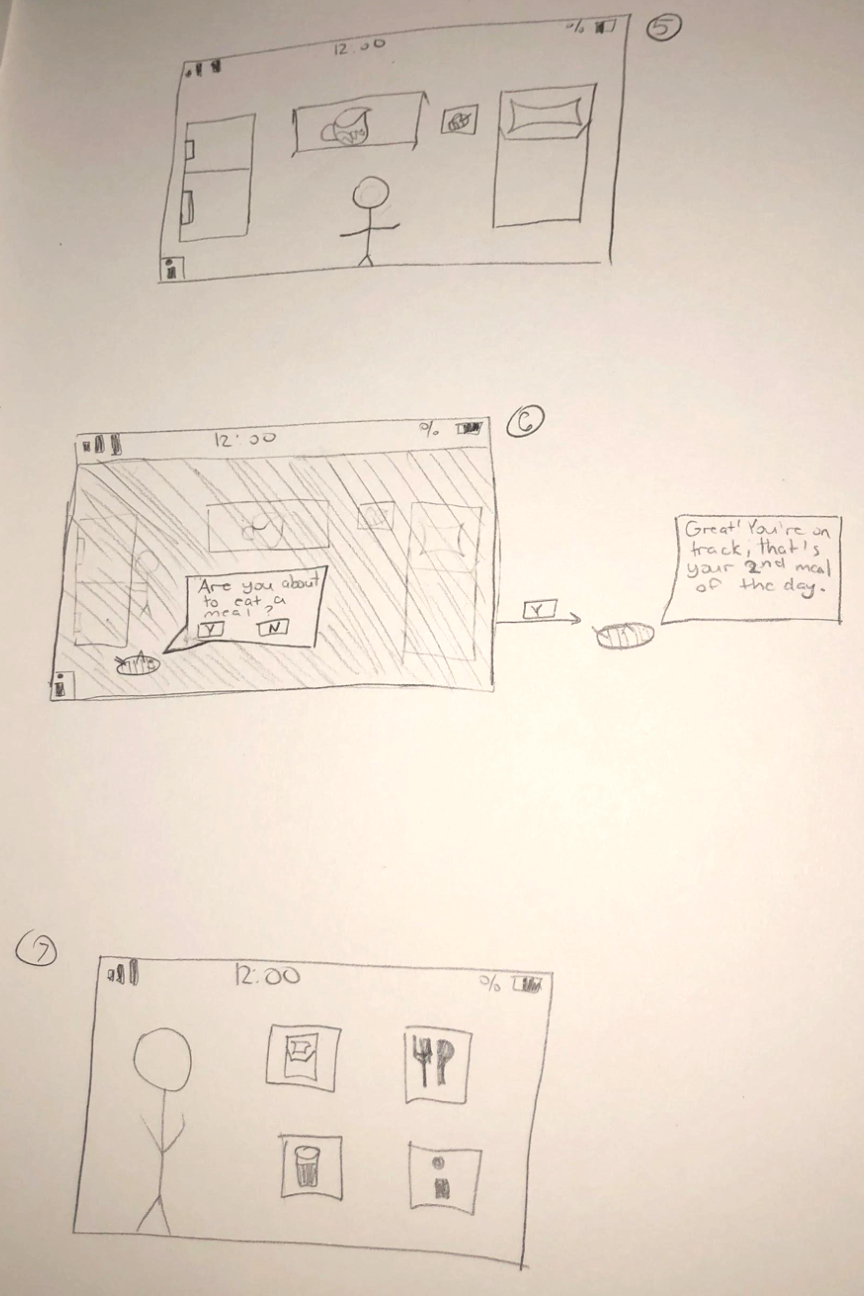 12:00
%
5
12:00
%
6
Are you about
to eat a
meal?
Y
N
Y
Great! You're on
track, that's
your 2nd meal
of the day.
7
12:00
%